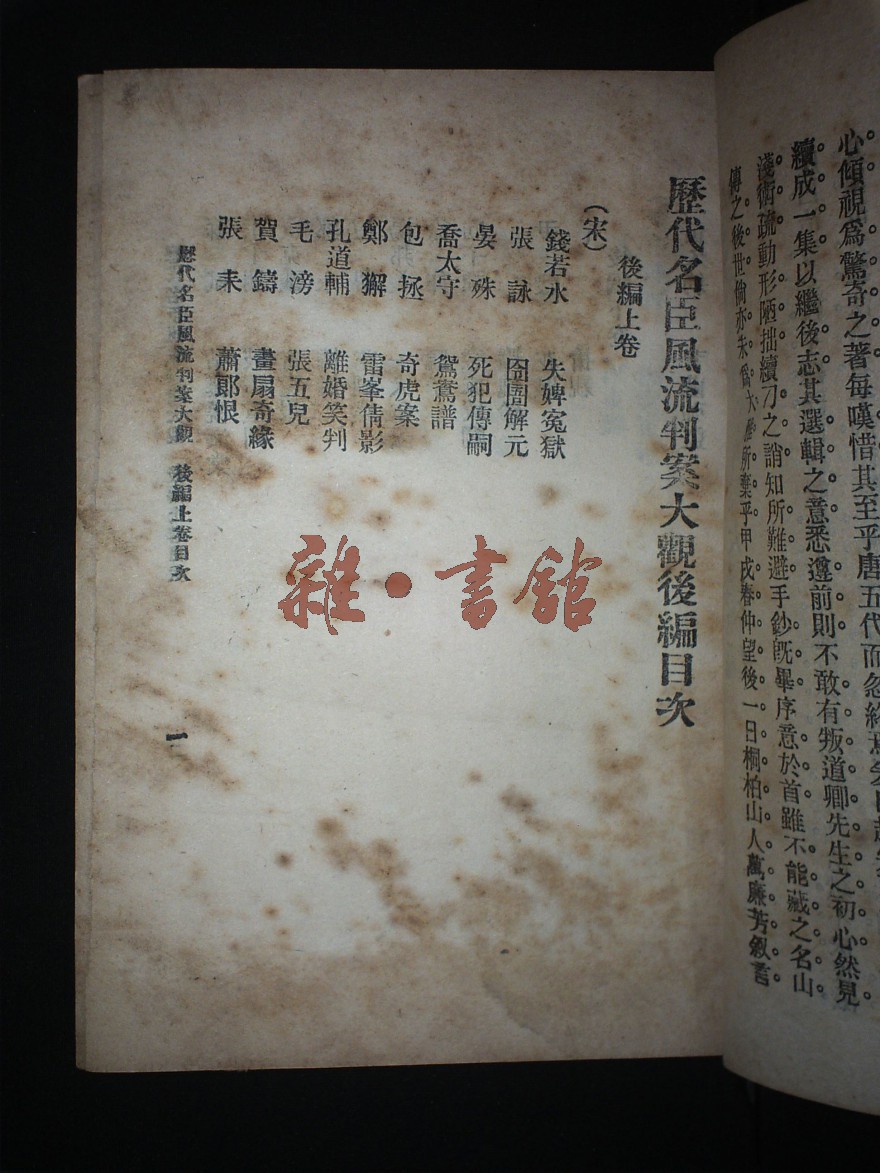 心傾視爲驚奇之著每嘆惜其至乎唐五代而忽終焉
續成一集以繼後志其選輯之意悉遵前則不敢有叛道卿先生之初心然見
淺術疏動形陋拙續刀之誚知所難避手鈔旣畢序意於首雖不能藏之名山
傳之後世倘亦未爲大雅所棄乎甲戌春仲望後一日桐柏山人萬廉芳敘言
歷代名臣風流判案大觀後編目次
後編上卷
(宋)
錢若水 失婢冤獄
張詠 囹圄解元
晏殊 死犯傳嗣
喬太守 鴛鴦譜
包拯 奇虎案
鄭獬 雷峯倩影
孔道輔 離婚笑判
毛滂 張五兒
賀鑄 畫扇奇緣
張耒 蕭郎恨
歷代名臣風流判案大觀 後編上卷目次
一
雜·書館